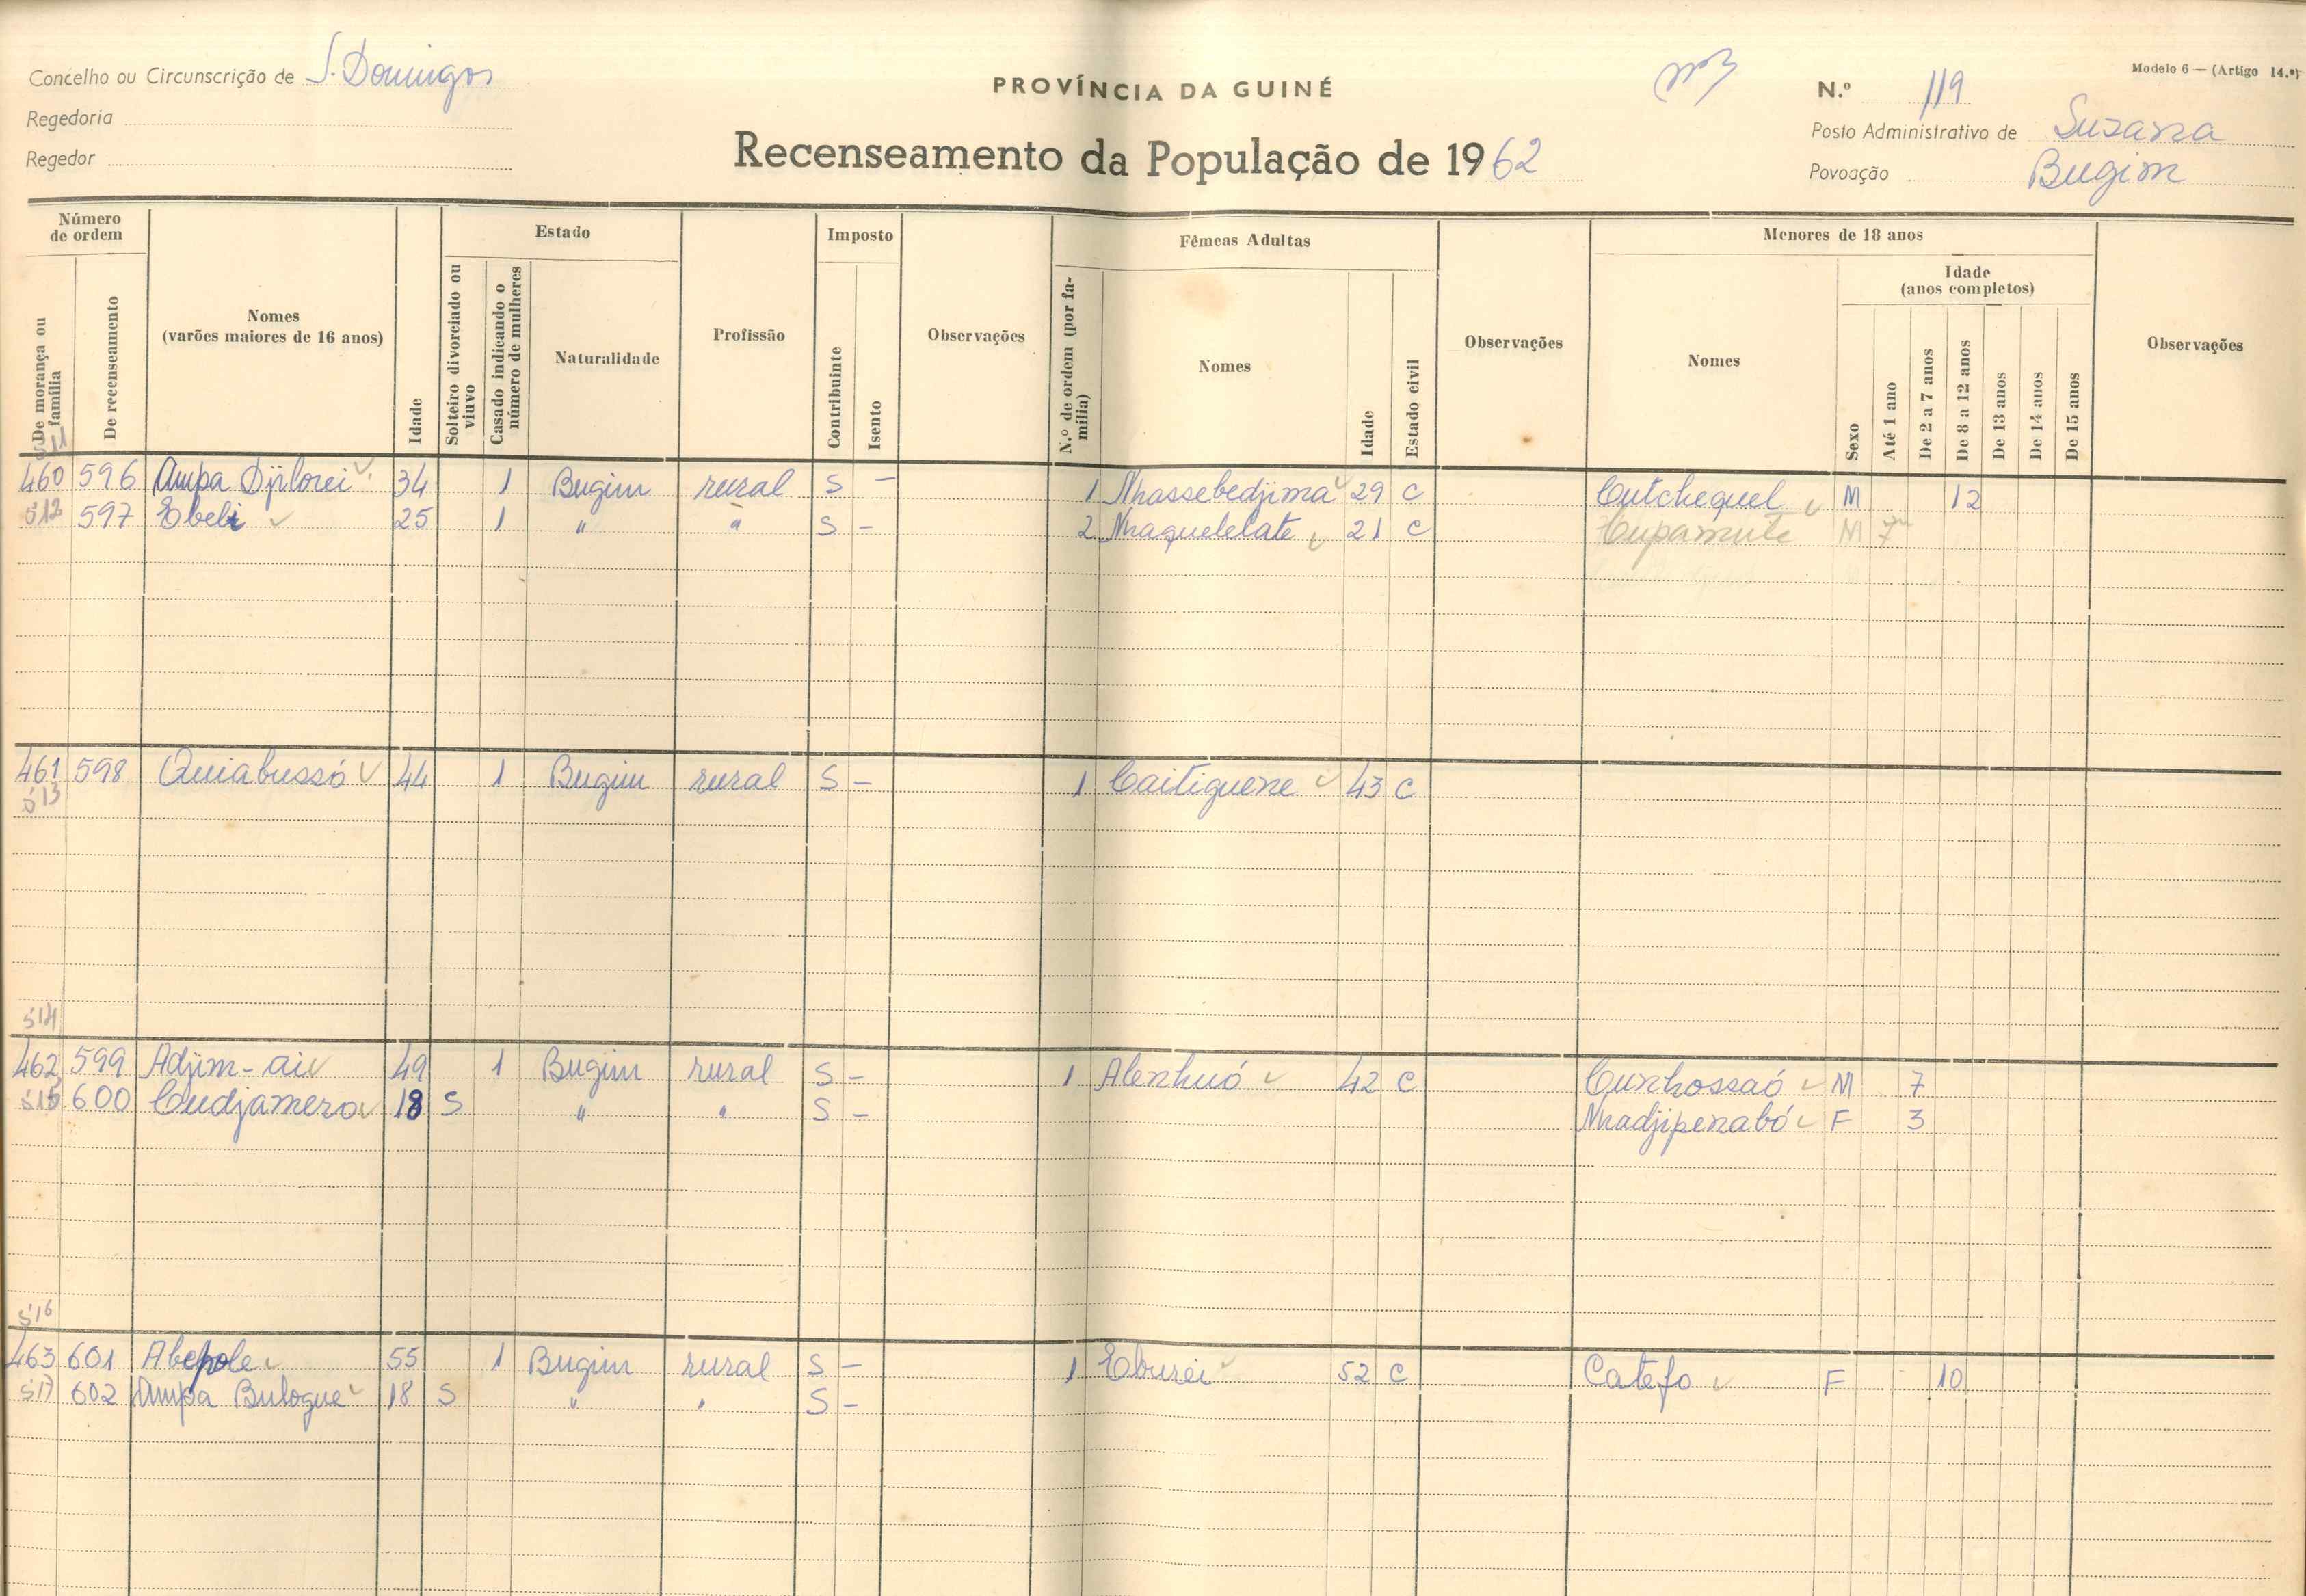 Modelo 6 — (Artigo 14.º)
Concelho ou Circunscrição de S. Domingos
PROVÍNCIA DA GUINÉ
N.º 119
Regedoria
Posto Administrativo de Suzana
Regedor
Recenseamento da População de 1962
Povoação Bugim
Número de ordem
De morança ou família
De recenseamento
Nomes
(varões maiores de 16 anos)
Idade
Estado
Solteiro divorciado ou viuvo
Casado indicando o número de mulheres
Naturalidade
Profissão
Imposto
Contribuinte
Isento
Observações
Fêmeas Adultas
N.º de ordem (por família)
Nomes
Idade
Estado civil
Observações
Menores de 18 anos
Nomes
Sexo
Idade
(anos completos)
Até 1 ano
De 2 a 7 anos
De 8 a 12 anos
De 13 anos
De 14 anos
De 15 anos
Observações
511
460 596 Ampa Djilorei 34 1 Bugim rural S - 1 Nhassebedjima 29 C Cutchequel M 12
512 597 Ebeli 25 1 " " S - 2 Nhaquelelate 21 C Cupamute M 7
461 598 Quiabussó 44 1 Bugim rural S - 1 Caitiguene 43 C
513
514
462 599 Adjim-ai 49 1 Bugim rural S - 1 Alenhuó 42 C Cunhossaó M 7
515 600 Cudjamero 18 S " " S - Nhadjipenabó F 3
516
463 601 Abepole 55 1 Bugim rural S - 1 Eburei 52 C Catefo F 10
517 602 Ampa Bulogue 18 S " " S -